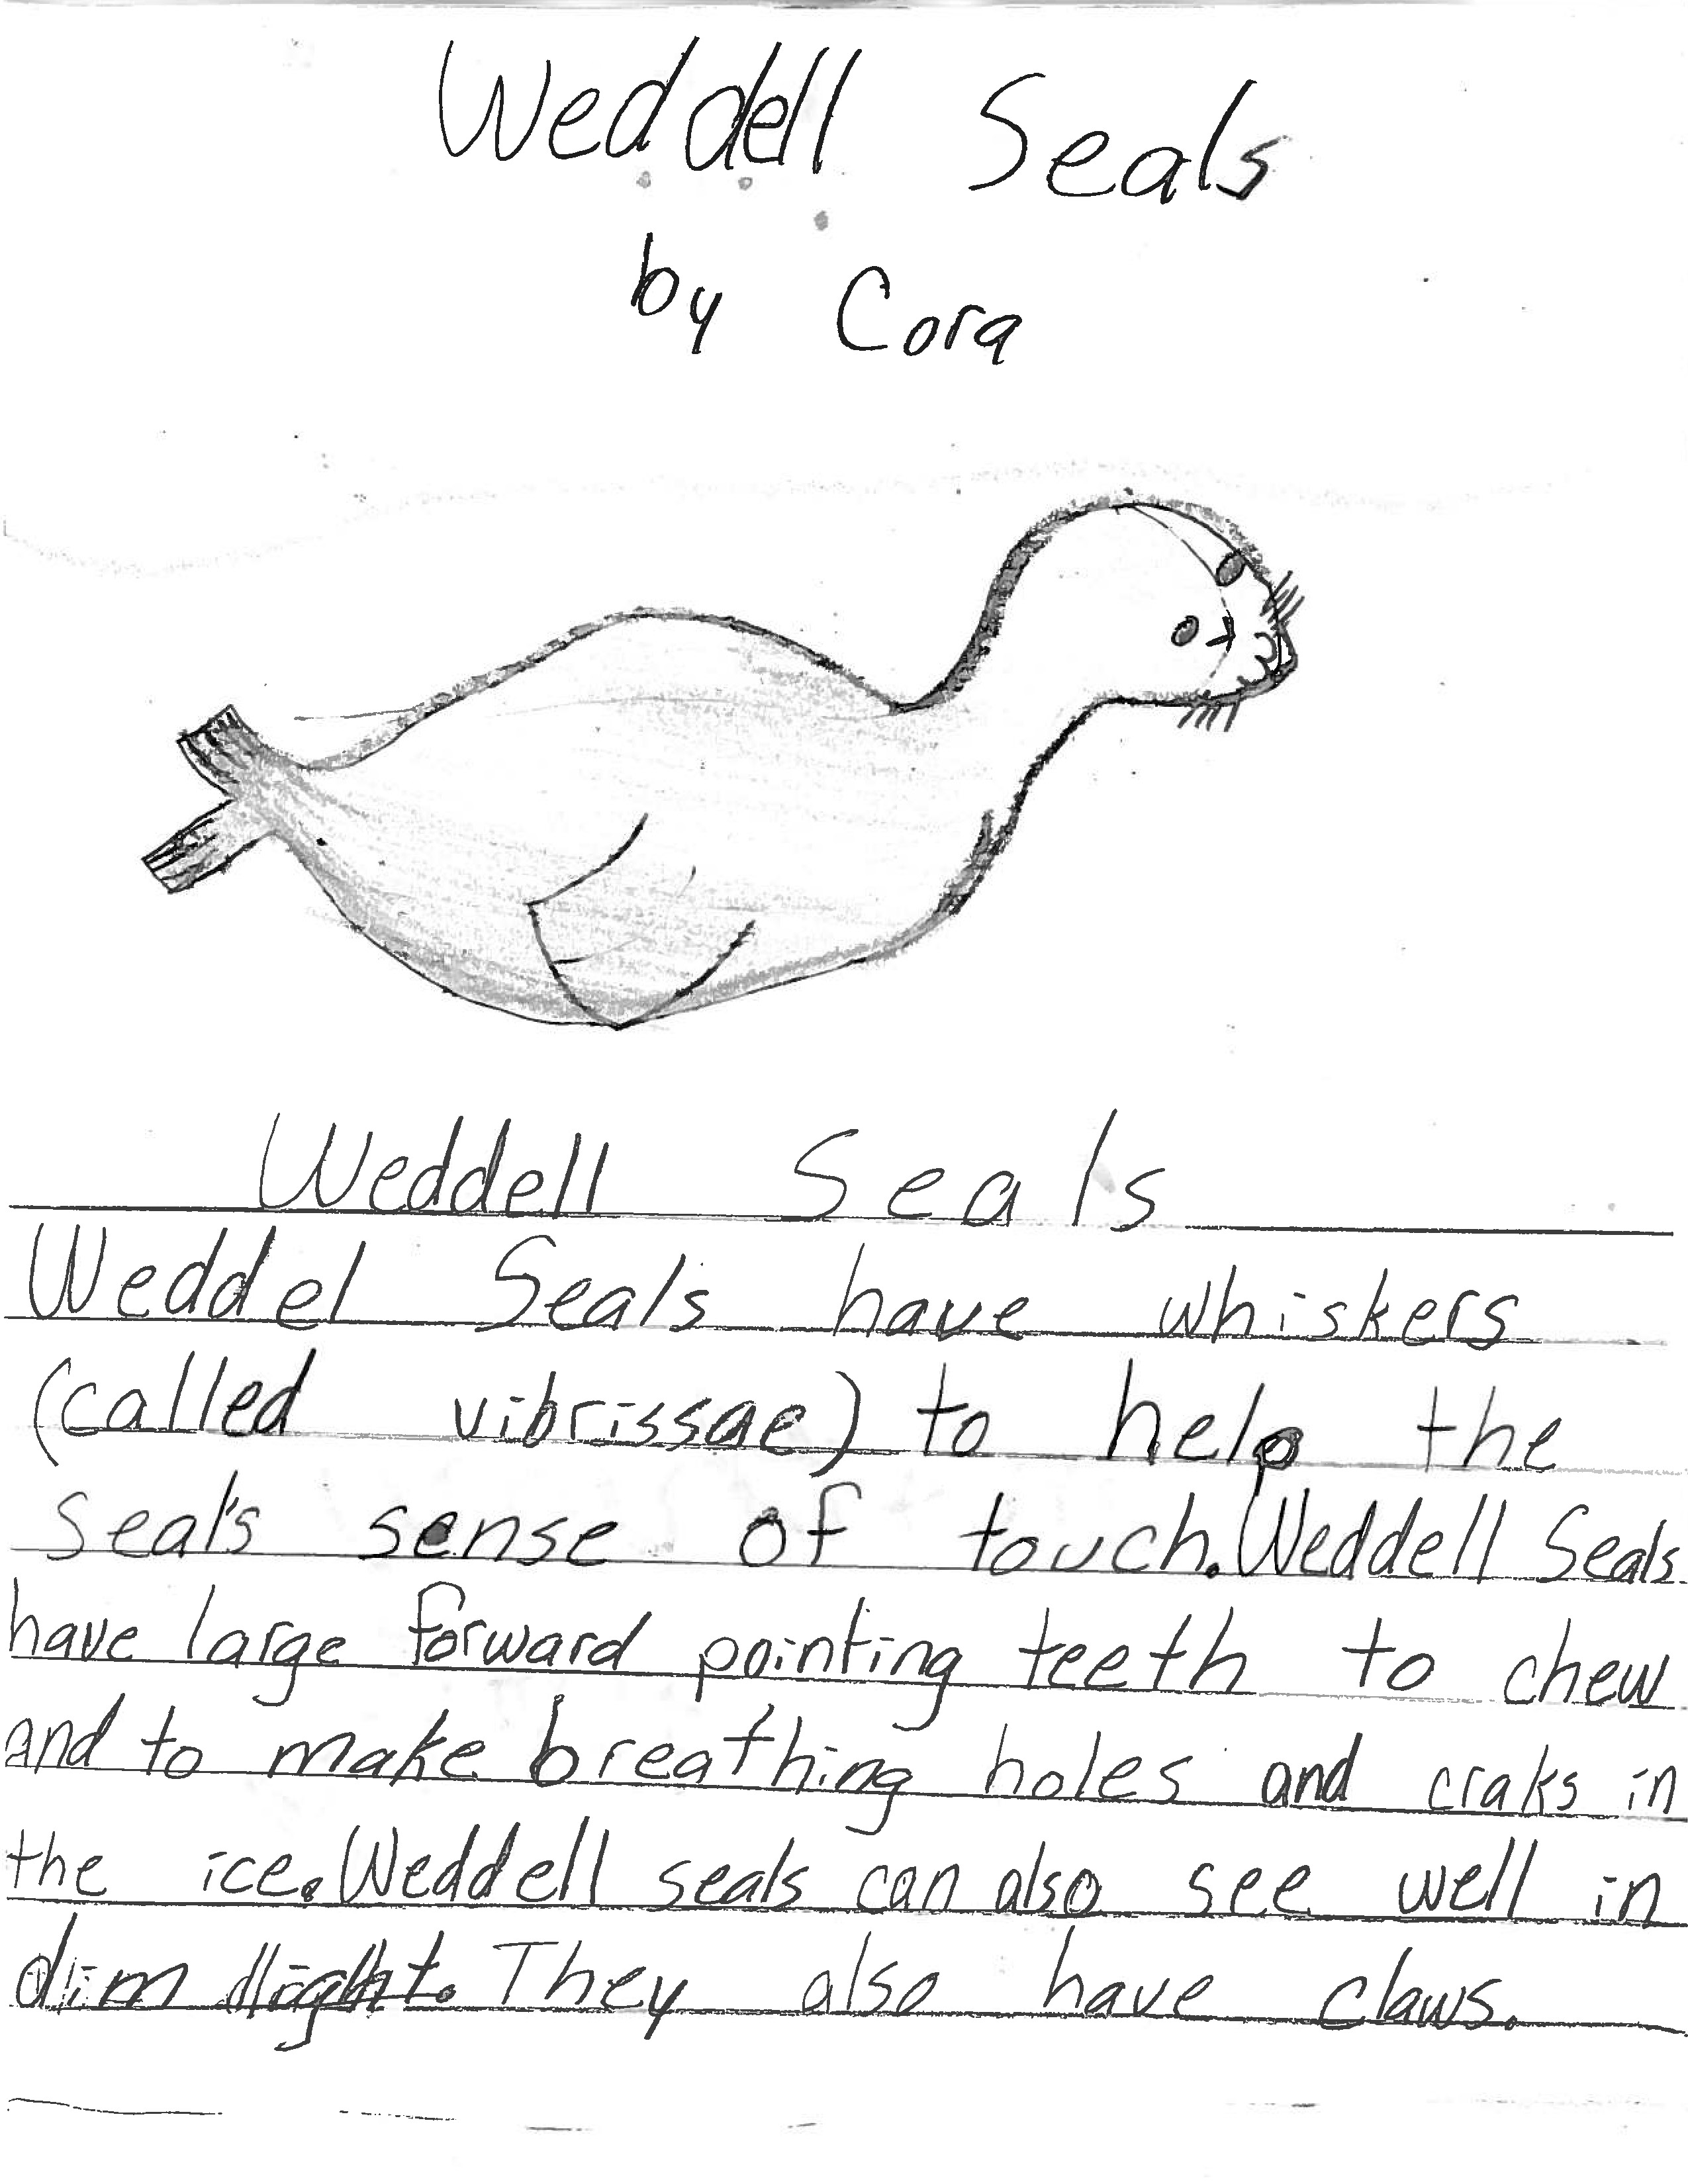 Weddell Seals
by Cora
Weddell Seals
Weddel Seals have whiskers
(called vibrissae) to help the
seal's sense of touch. Weddell Seals
have large forward pointing teeth to chew
and to make breathing holes and craks in
the ice. Weddell seals can also see well in
dim light. They also have claws.